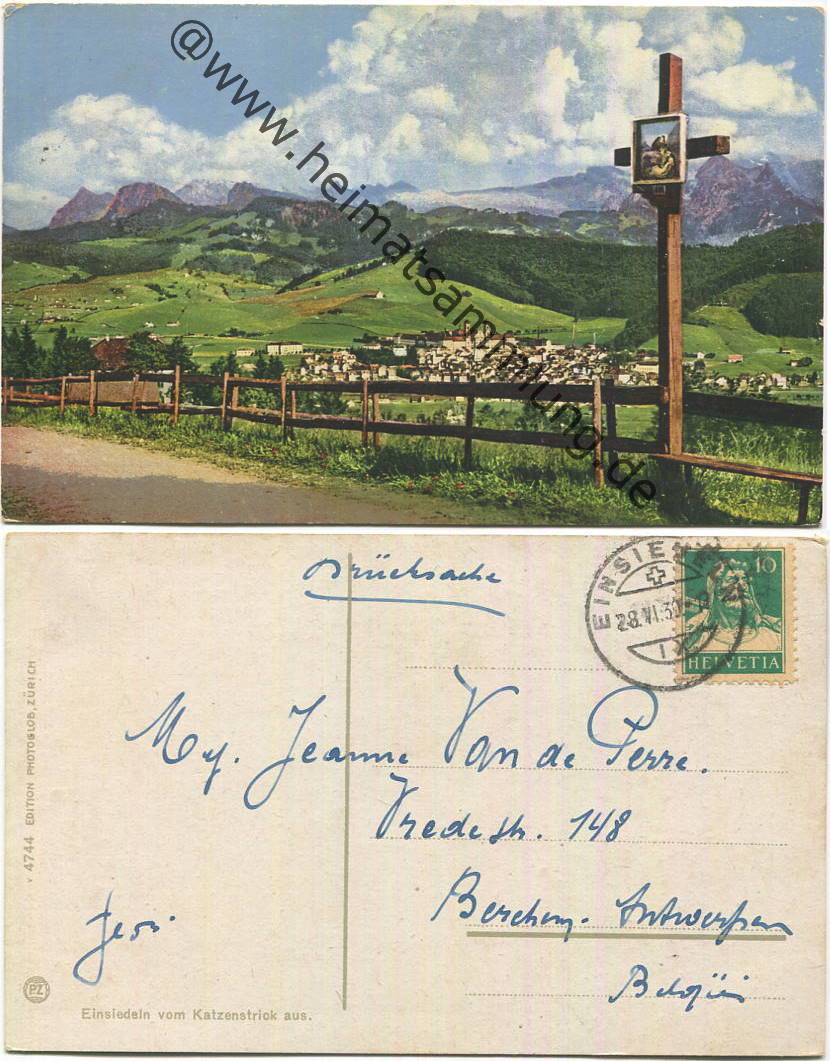 @www.heimatsammlung.de
Drucksache
EINSIEDELN
28.VI.30
10
HELVETIA
Mej. Jeanne Van de Perre.
Vredestr. 148
Berchem-Antwerpen
België
v 4744 EDITION PHOTOGLOB, ZÜRICH
PZ
Einsiedeln vom Katzenstrick aus.